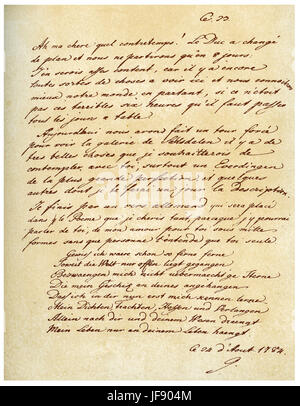 Ce. 23.
Ah ma chere quel contretems! Le Duc a changé
de plan et nous ne partirons qu'en 8 jours.
J'en serois assez content, car il y a encore
toutes sortes de choses a voir ici et nous connoitrons
mieux notre monde en partant, si ce n'etoit
pas ces terribles six heures qu'il faut passer
tous les jours a table.
Aujourdhui nous avons fait un tour
pour voir la galerie de il y a de
tres belles choses que je souhaiterois de
contempler avec toi, surtout un
de la plus grande perfection et quelques
autres dont je ferai un jour la description.
Je finis par un vers allemand qui sera placé
dans le Poeme que je cheris tant, parceque j'y pourrai
parler de toi, de mon amour pour toi sous mille
formes sans que personne l'entende que toi seule.
Gewiss ich wäre schon so ferne ferne
Soweit die Welt nur offen liegt gegangen
Bezwängen mich nicht übermächt'ge Sterne
Die mein Geschick an deines angehangen
Dass ich in dir nun erst mich kennen lerne
Mein Dichten, Trachten, Hoffen und Verlangen
Allein nach dir und deinem Wesen draengt
Mein Leben nur an deinem Leben haengt
Ce 24 d'Aout 1784.
G.
alamy
alamy stock photo
JF904M
www.alamy.com